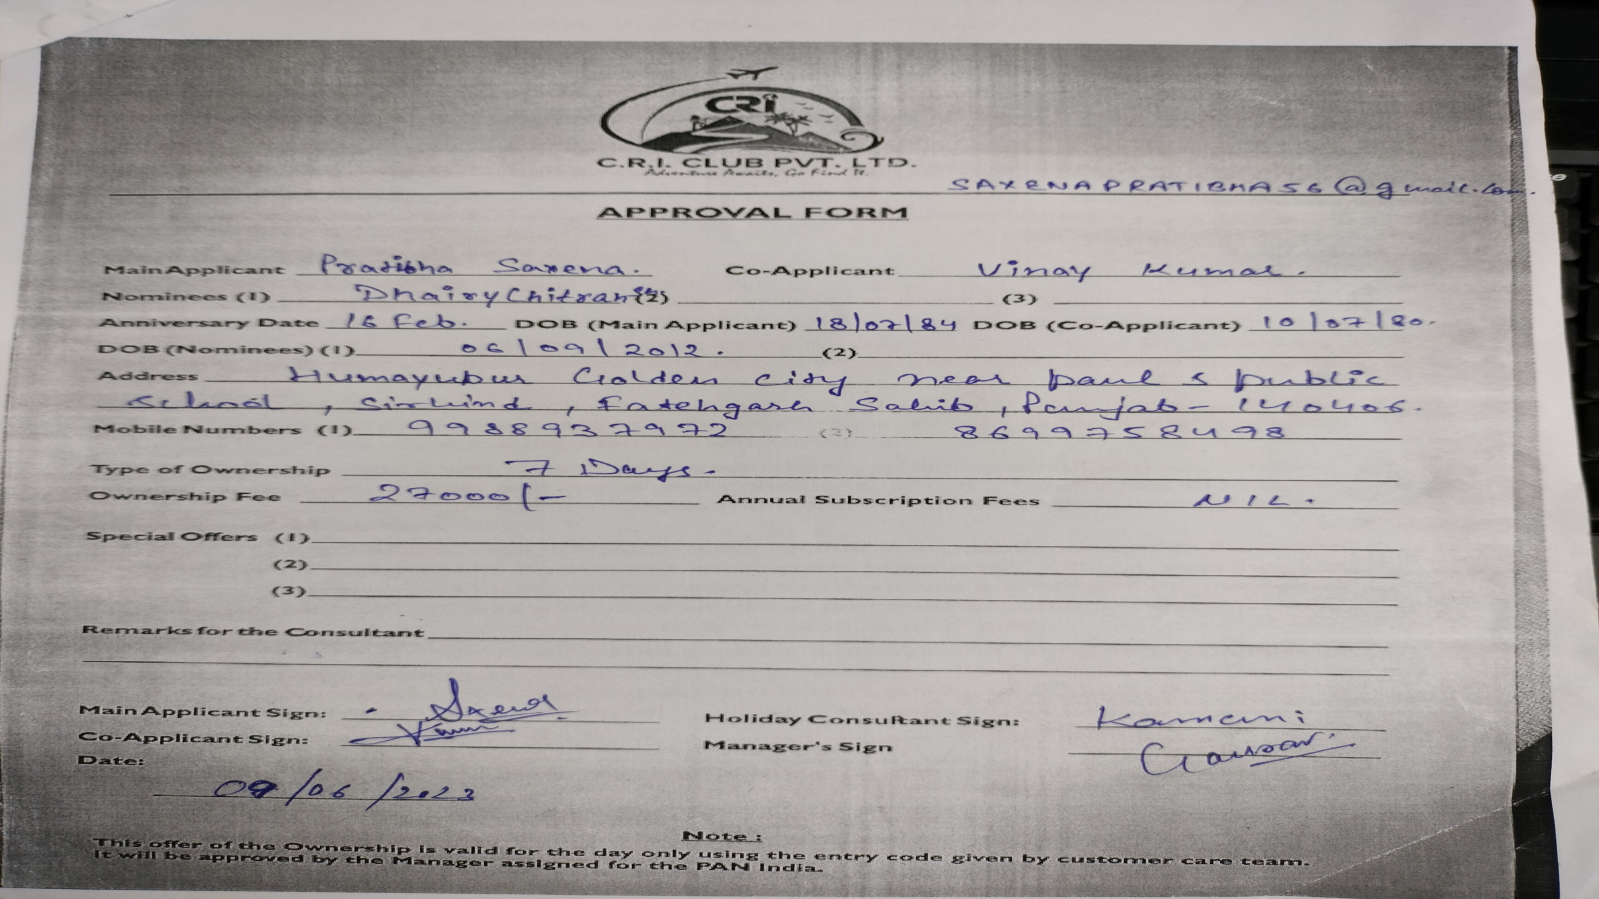 CRI
C.R.I. CLUB PVT. LTD.
Adventure Awaits, Go Find It.
SAXENAPRATIBHA56@gmail.com.
APPROVAL FORM
Main Applicant Pratibha Saxena. Co-Applicant Vinay Kumar.
Nominees (1) Dhairy Chitransh (2) (3)
Anniversary Date 16 Feb. DOB (Main Applicant) 18/07/84 DOB (Co-Applicant) 10/07/80.
DOB (Nominees) (1) 06/09/2012. (2)
Address Humayupur Golden city near paul s public
school, Sirhind, Fatehgarh Sahib, Punjab - 140406.
Mobile Numbers (1) 9988937972 (2) 8699758498
Type of Ownership 7 Days.
Ownership Fee 27000/- Annual Subscription Fees NIL.
Special Offers (1)
(2)
(3)
Remarks for the Consultant
Main Applicant Sign: Saxena Holiday Consultant Sign: Kamani
Co-Applicant Sign: Manager's Sign Gaurav.
Date:
09/06/2023
Note :
This offer of the Ownership is valid for the day only using the entry code given by customer care team.
It will be approved by the Manager assigned for the PAN India.